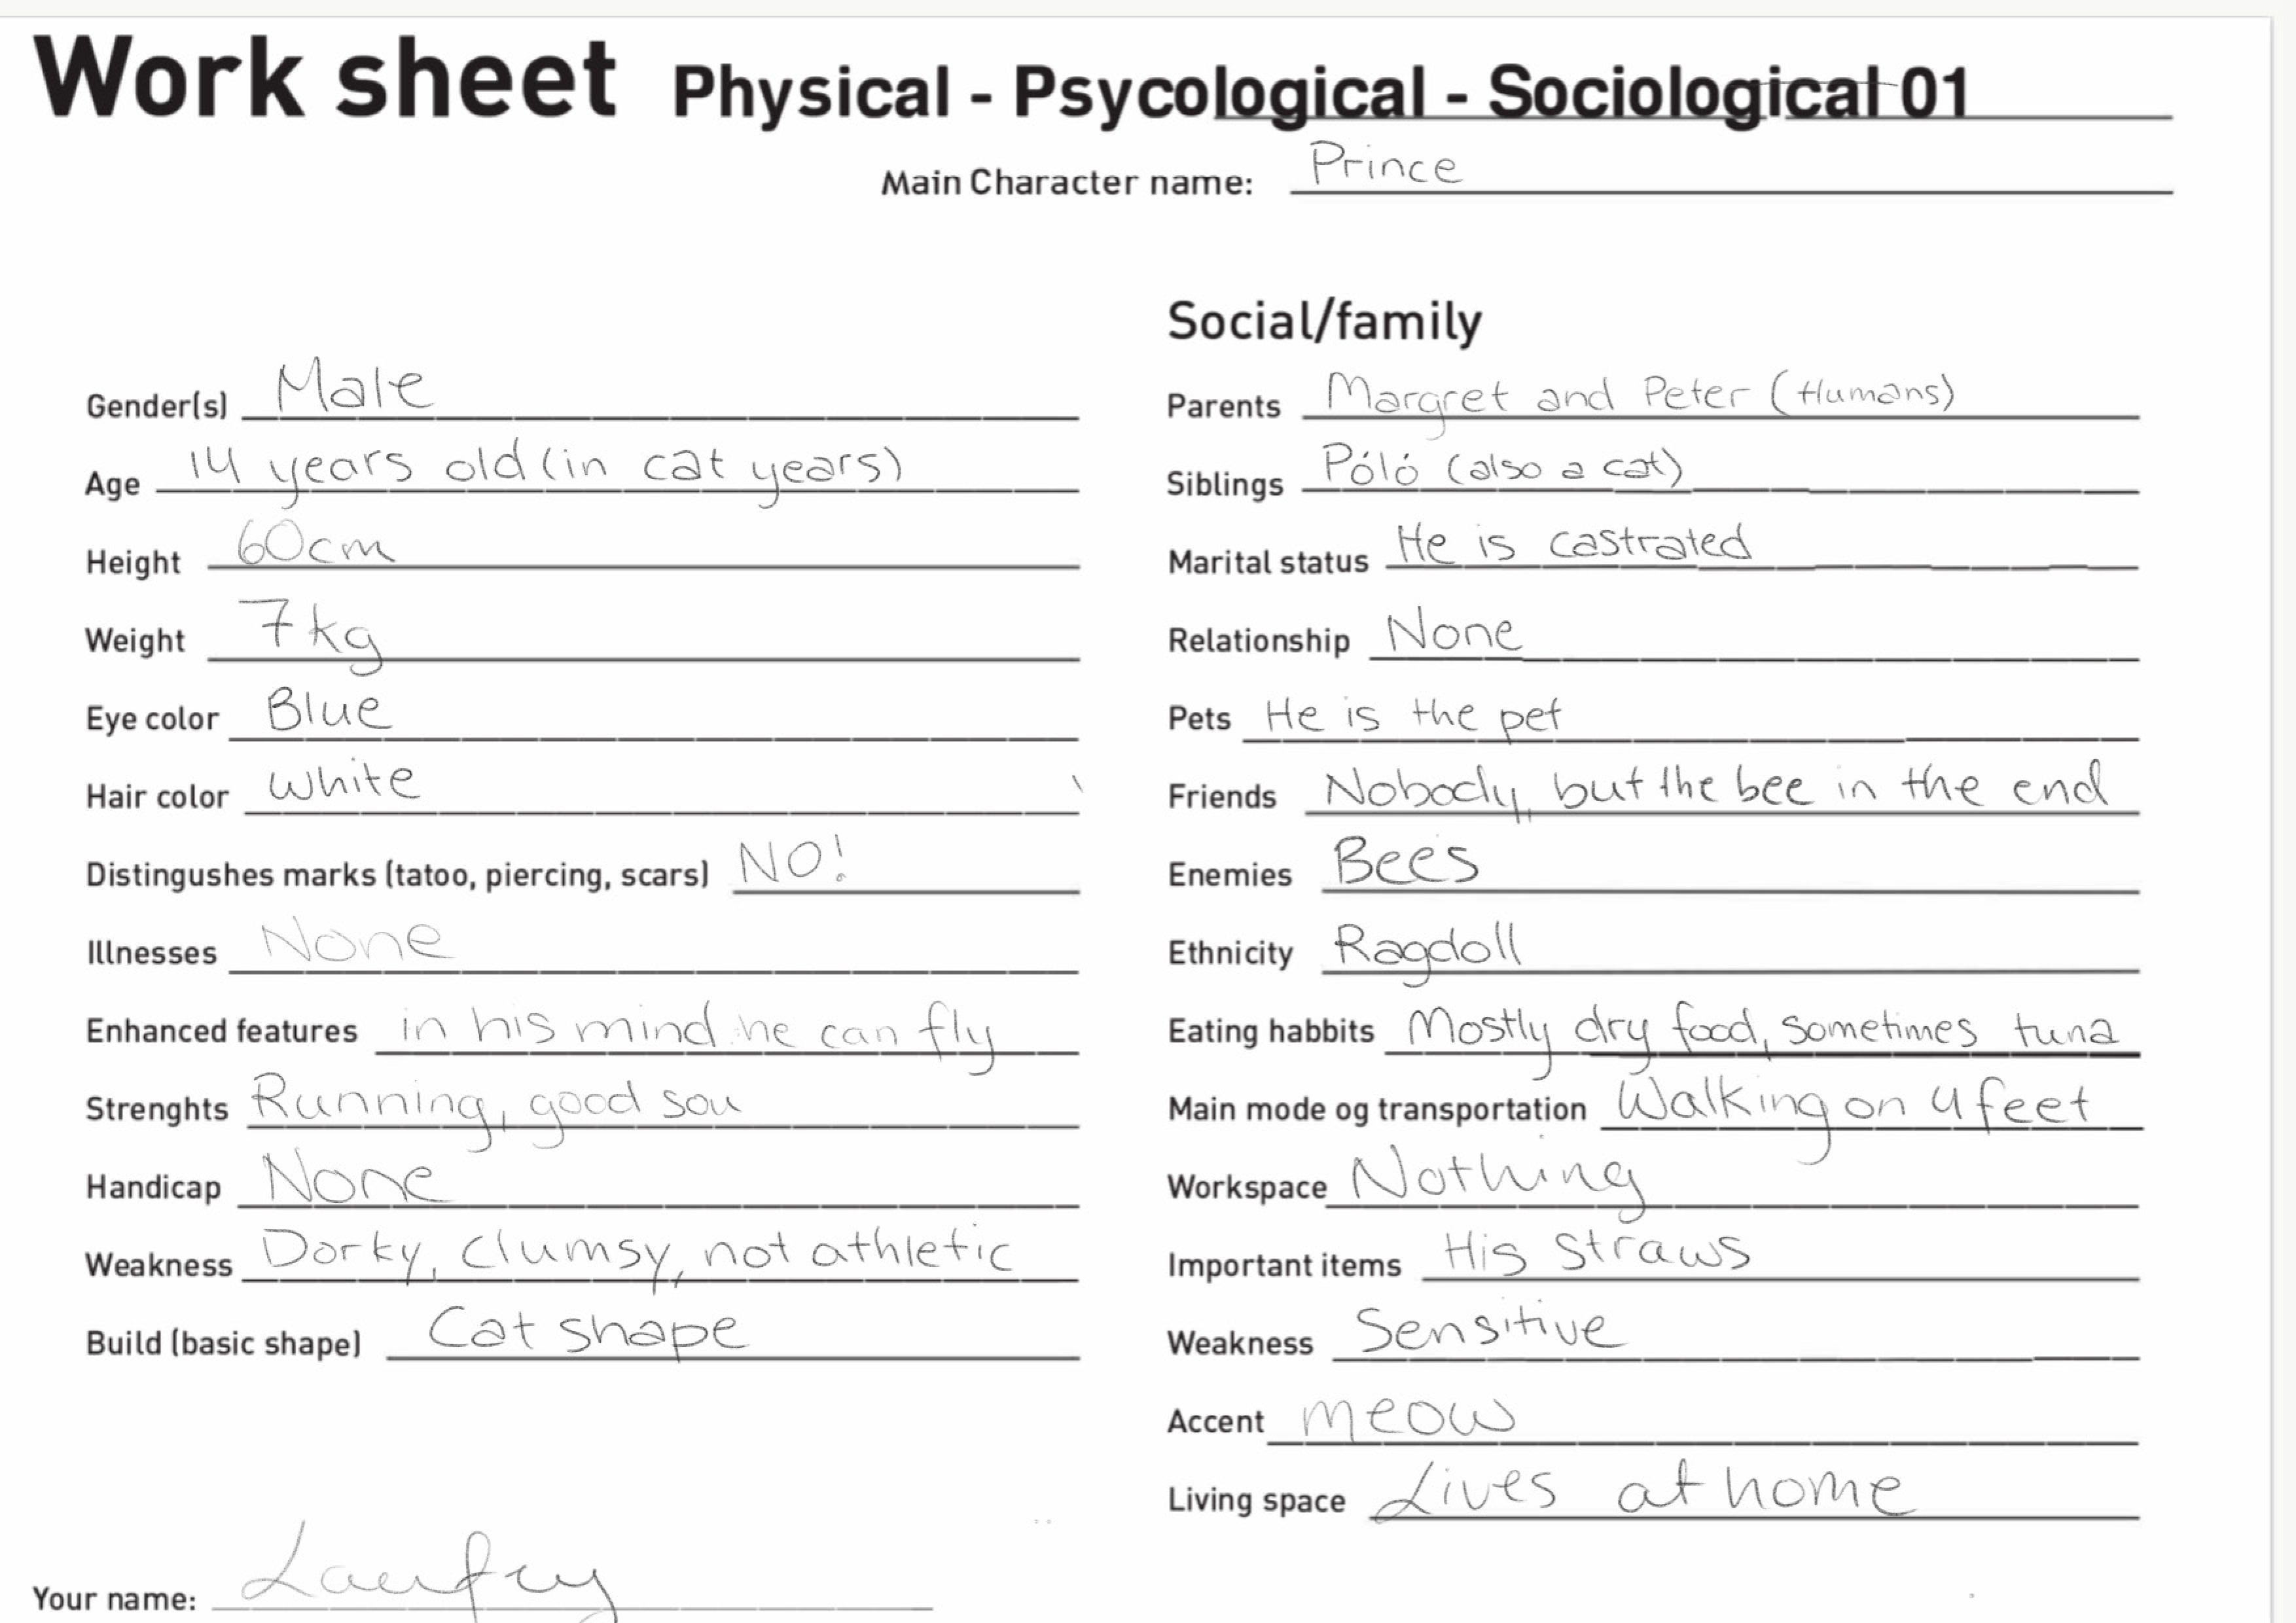 Work sheet Physical - Psycological - Sociological 01
Main Character name: Prince
Gender(s) Male
Age 14 years old (in cat years)
Height 60cm
Weight 7kg
Eye color Blue
Hair color white
Distingushes marks (tatoo, piercing, scars) NO!
Illnesses None
Enhanced features in his mind he can fly
Strenghts Running, good sou
Handicap None
Weakness Dorky, clumsy, not athletic
Build (basic shape) Cat shape
Social/family
Parents Margret and Peter (Humans)
Siblings Póló (also a cat)
Marital status He is castrated
Relationship None
Pets He is the pet
Friends Nobody, but the bee in the end
Enemies Bees
Ethnicity Ragdoll
Eating habbits Mostly dry food, sometimes tuna
Main mode og transportation Walking on 4 feet
Workspace Nothing
Important items His straws
Weakness Sensitive
Accent meow
Living space Lives at home
Your name: Laufey